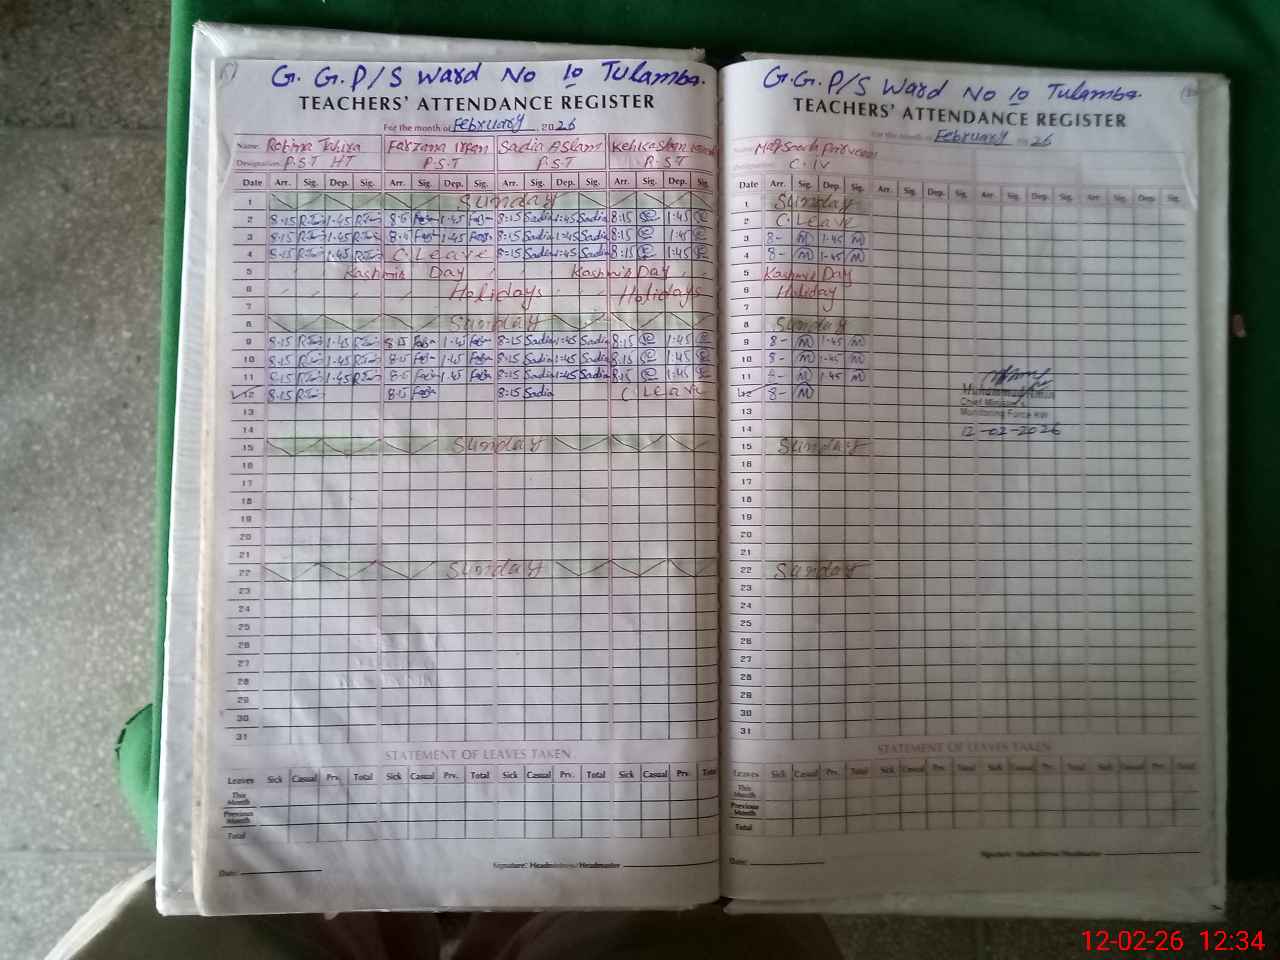 G.G.P/S Ward No 10 Tulamba.
TEACHERS' ATTENDANCE REGISTER
For the month of February 2026
Name: Robina Tahira Farzana Irfan Sadia Aslam Kehkashan
Designation P.S.T HT P.S.T P.S.T P.S.T
Date Arr. Sig. Dep. Sig. Arr. Sig. Dep. Sig. Arr. Sig. Dep. Sig. Arr. Sig. Dep. Sig.
1 Sunday
2 8.15 1.45 8.15 1.45 8:15 Sadia 1:45 Sadia 8:15 1:45
3 8.15 1.45 8.15 1.45 8:15 Sadia 1:45 Sadia 8:15 1:45
4 8.15 1.45 C. Leave 8:15 Sadia 1:45 Sadia 8:15 1:45
5 Kashmir Day Kashmir Day
6 Holidays Holidays
7
8 Sunday
9 8.15 1.45 8.15 1.45 8:15 Sadia 1:45 Sadia 8:15 1:45
10 8.15 1.45 8.15 1.45 8:15 Sadia 1:45 Sadia 8:15 1:45
11 8.15 1.45 8.15 1.45 8:15 Sadia 1:45 Sadia 8:15 1:45
12 8.15 8.15 8:15 Sadia C. Leave
13
14
15 Sunday
16
17
18
19
20
21
22 Sunday
23
24
25
26
27
28
29
30
31
STATEMENT OF LEAVES TAKEN
Leaves Sick Casual Prv. Total Sick Casual Prv. Total Sick Casual Prv. Total Sick Casual Prv. Total
This Month
Previous Month
Total
Signature: Headmistress/Headmaster
Date:
G.G.P/S Ward No 10 Tulamba.
TEACHERS' ATTENDANCE REGISTER
For the month of February 2026
Name Maqsooda Parveen
Designation C.IV
Date Arr. Sig. Dep. Sig. Arr. Sig. Dep. Sig. Arr. Sig. Dep. Sig. Arr. Sig. Dep. Sig.
1 Sunday
2 C. Leave
3 8- M 1.45 M
4 8- M 1.45 M
5 Kashmir Day
6 Holiday
7
8 Sunday
9 8- M 1.45 M
10 8- M 1.45 M
11 8- M 1.45 M
12 8- M
Chief Minister's
13 Monitoring Force KW
14 12-02-2026
15 Sunday
16
17
18
19
20
21
22 Sunday
23
24
25
26
27
28
29
30
31
STATEMENT OF LEAVES TAKEN
Leaves Sick Casual Prv. Total Sick Casual Prv. Total Sick Casual Prv. Total Sick Casual Prv. Total
This Month
Previous Month
Total
Signature: Headmistress/Headmaster
Date:
12-02-26 12:34